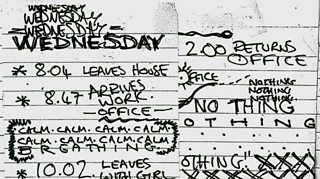 WEDNESDAY
WEDNESDAY
WEDNESDAY
WEDNESDAY
* 8.04 LEAVES HOUSE
* 8.47 ARRIVES
WORK
OFFICE
CALM. CALM. CALM. CALM.
CALM. CALM. CALM. CALM.
BREATHING.
* 10.02 LEAVES
WITH GIRL
2.00 RETURNS
OFFICE
OFFICE
NOTHING
NOTHING
NOTHING
NO THING
OTHING
OTHING" XXXX